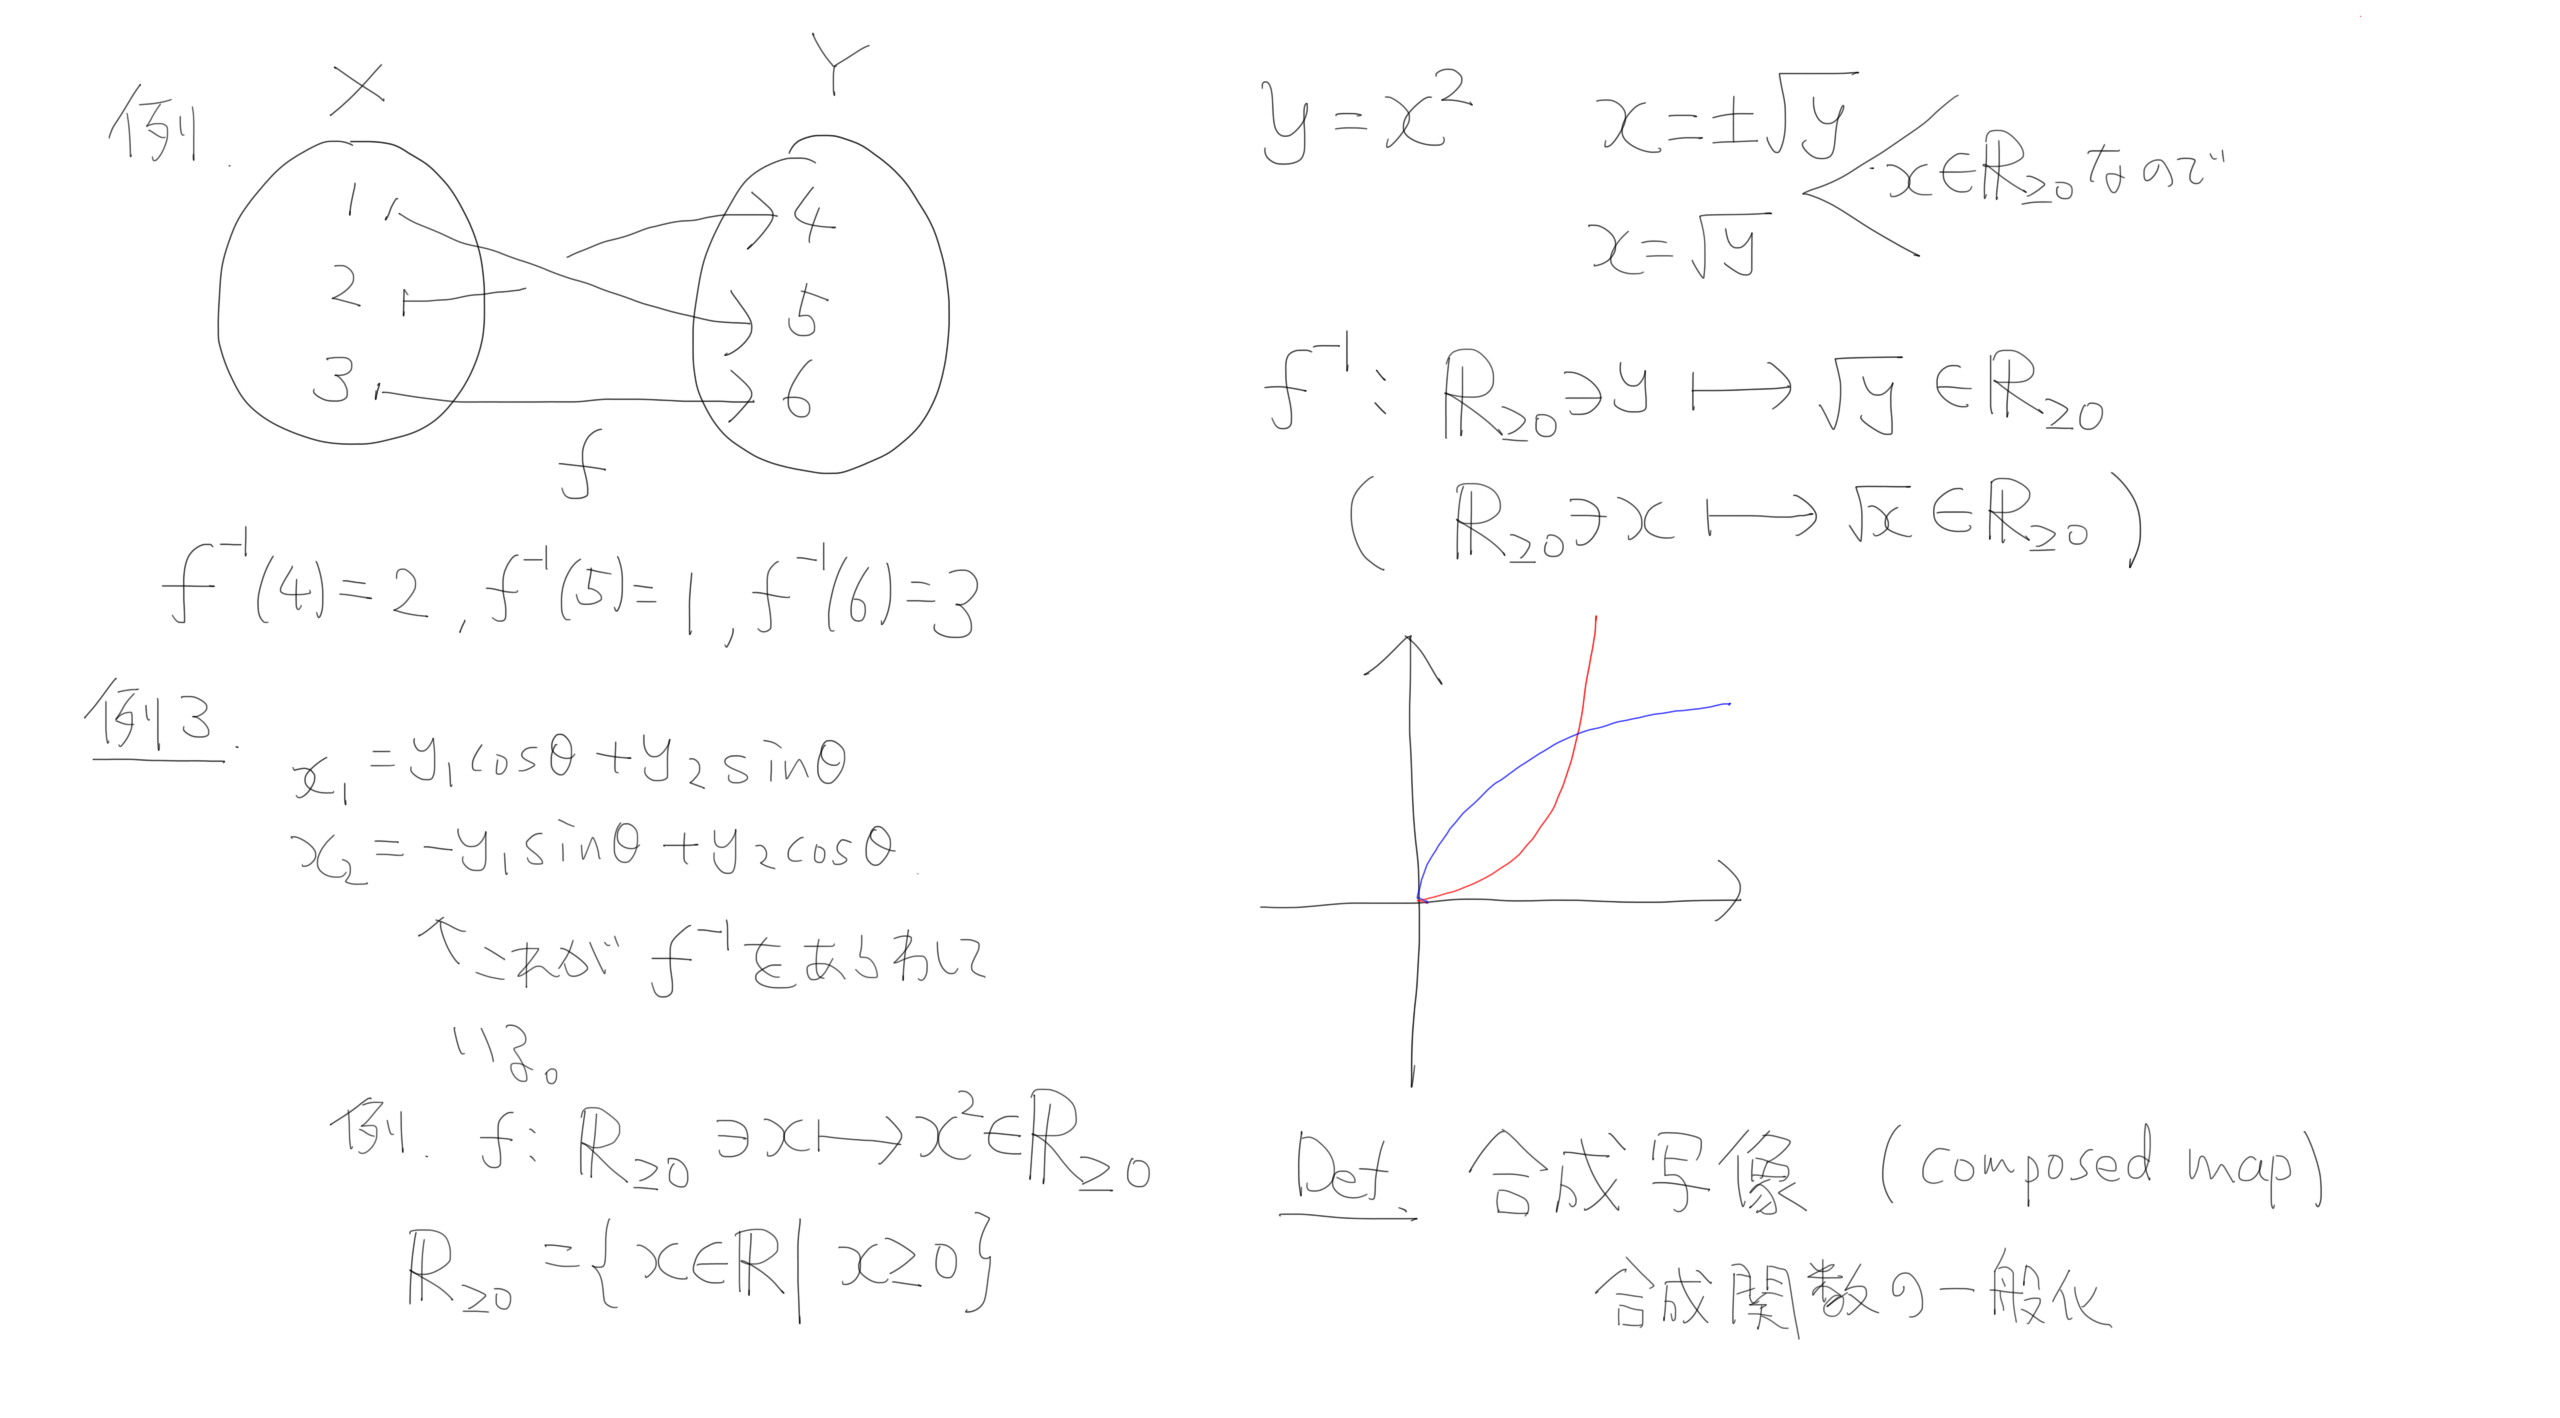 例.
X Y
1 4
2 5
3 6
f
f⁻¹(4)=2, f⁻¹(5)=1, f⁻¹(6)=3
例3.
x₁=y₁cosθ+y₂sinθ
x₂=-y₁sinθ+y₂cosθ.
↑これがf⁻¹をあらわして
いる。
例. f: ℝ≥0∋x↦x²∈ℝ≥0
ℝ≥0={x∈ℝ|x≥0}
y=x² x=±√y
x∈ℝ≥0なので
x=√y
f⁻¹: ℝ≥0∋y↦√y∈ℝ≥0
(ℝ≥0∋x↦√x∈ℝ≥0)
Def. 合成写像 (composed map)
合成関数の一般化